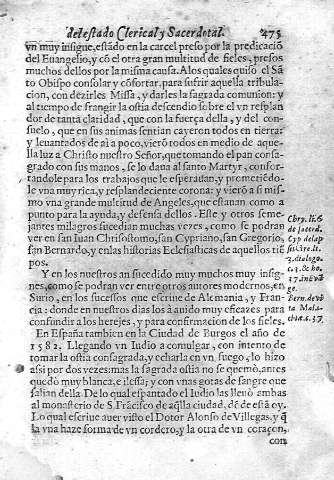 del estado Clerical y Sacerdotal. 475
vn muy insigne, estãdo en la carcel preso por la predicaciõ
del Euangelio, y cõ el otra gran multitud de fieles, presos
muchos dellos por la misma causa. A los quales quiso el Sã
to Obispo consolar y cõfortar, para sufrir aquella tribula-
cion, con dezirles Missa, y darles la sagrada comunion: y
al tiempo de frangir la ostia descendio sobre el vn resplan
dor de tanta claridad, que con la fuerça della, y del con-
suelo, que en sus animas sentian cayeron todos en tierra:
y leuantados de ai a poco, vierõ todos en medio de aque-
lla luz a Christo nuestro Señor, que tomando el pan con sa-
grado con sus manos, se lo daua al santo Martyr, confor-
tandole para los trabajos que le esperauan, y prometiẽdo-
le vna muy rica, y resplandeciente corona: y vierõ a si mis-
mo vna grande multitud de Angeles, que estauan como a
punto para la ayuda, y defensa dellos. Este y otros seme-
jantes milagros sucedian muchas vezes, como se podran
ver en san Iuan Chrisostomo, san Cypriano, san Gregorio,
san Bernardo, y en las historias Eclesiasticas de aquellos tiẽ
pos.
Chry. li. 6
de sacerd.
Cyp. de lap
Bern. de vi
ta Mala-
Y en los nuestros an sucedido muy muchos muy insig-
nes, como se podran ver entre otros autores modernos, en
Surio, en los sucessos que escriue de Alemania, y Fran-
cia: donde en nuestros dias los à auido muy eficazes para
confundir a los herejes, y para confirmacion de los fieles.
En España tambien en la Ciudad de Burgos el año de
1582. Llegando vn Iudio a comulgar, con intento de
tomar la ostia consagrada, y echarla en vn fuego, lo hizo
assi por dos vezes: mas la sagrada ostia no se quemò, antes
quedò muy blanca, e ilessa; y con vnas gotas de sangre que
salian della. De lo qual espantado el Iudio las lleuò ambas
al monasterio de S. Frãcisco de aq̃lla ciudad, dõde està oy.
Lo qual escriue auer visto el Dotor Alonso de Villegas, y q̃
la vna haze forma de vn cordero, y la otra de vn coraçon,
con